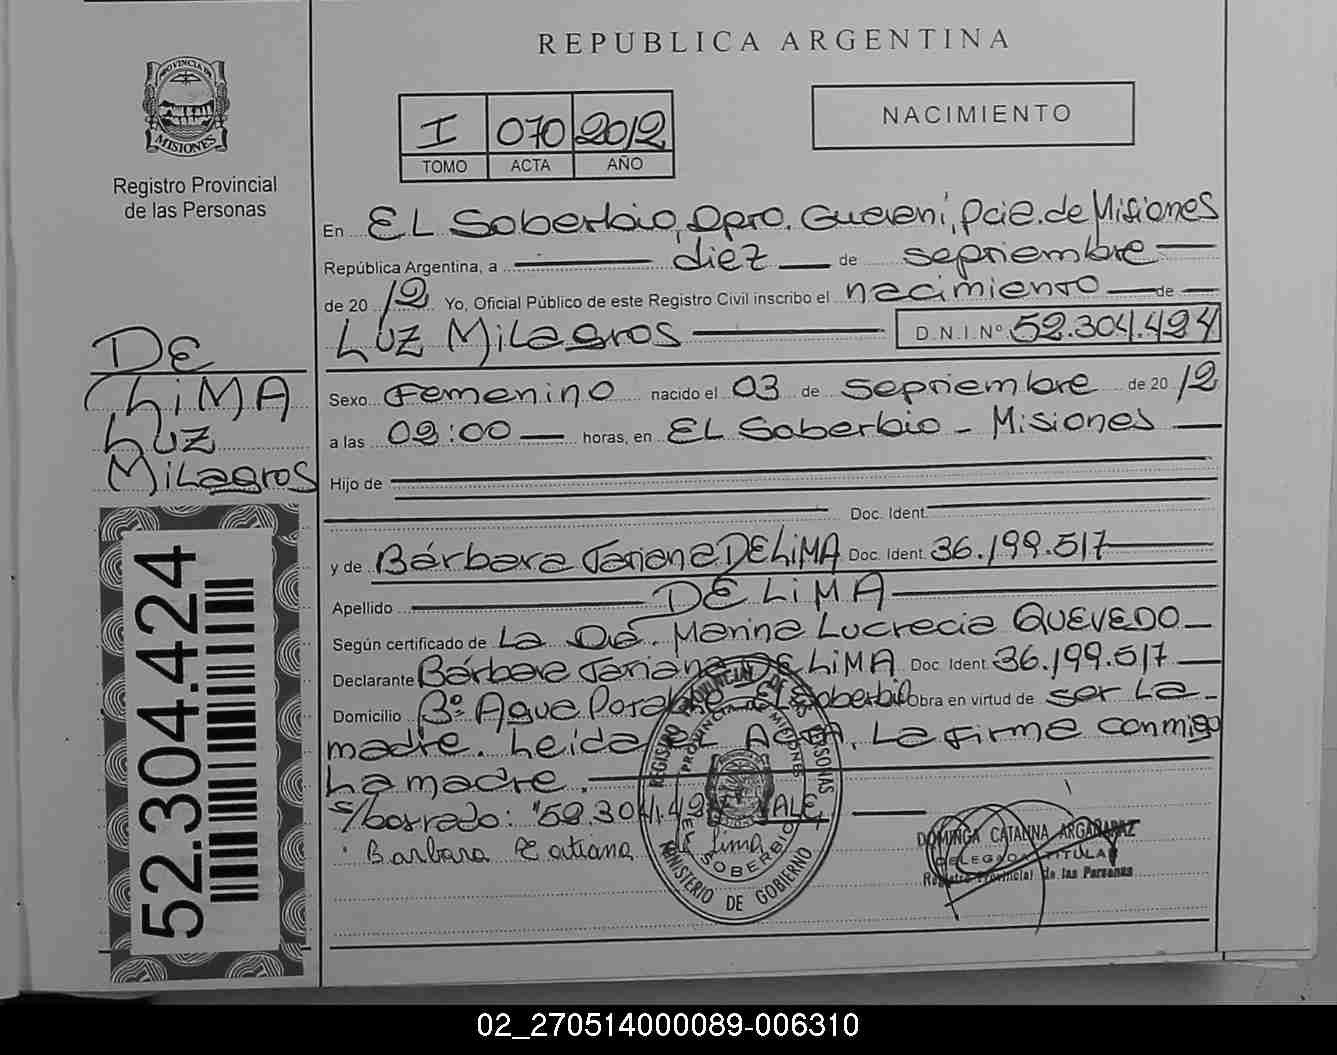 REPUBLICA ARGENTINA
PROVINCIA DE
MISIONES
Registro Provincial
de las Personas
I 070 2012
TOMO ACTA AÑO
NACIMIENTO
En EL Soberbio, Dpto. Guaraní, Pcia. de Misiones
República Argentina, a diez de septiembre
de 2012 Yo, Oficial Público de este Registro Civil inscribo el nacimiento de
Luz Milagros D.N.I. Nº 52.304.424
Sexo Femenino nacido el 03 de septiembre de 2012
a las 09:00 horas, en EL Soberbio - Misiones
Hijo de
Doc. Ident.
y de Bárbara Tatiana DE LIMA Doc. Ident. 36.199.517
Apellido DE LIMA
Según certificado de La Dra. Marina Lucrecia QUEVEDO
Declarante Bárbara Tatiana DE LIMA Doc. Ident. 36.199.517
Domicilio Bº Agua Paraíso - El Soberbio Obra en virtud de ser La
madre. Leida el ACTA, La firma conmigo
La madre.
s/borrado: "52.304.424" VALE.
Barbara Tatiana de lima
REGISTRO PROVINCIAL DE LAS PERSONAS
PROVINCIA DE MISIONES
EL SOBERBIO
MINISTERIO DE GOBIERNO
DOMINGA CATALINA ARGAÑARAZ
DELEGADA TITULAR
Registro Provincial de las Personas
DE
LIMA
Luz
Milagros
52.304.424
02_270514000089-006310